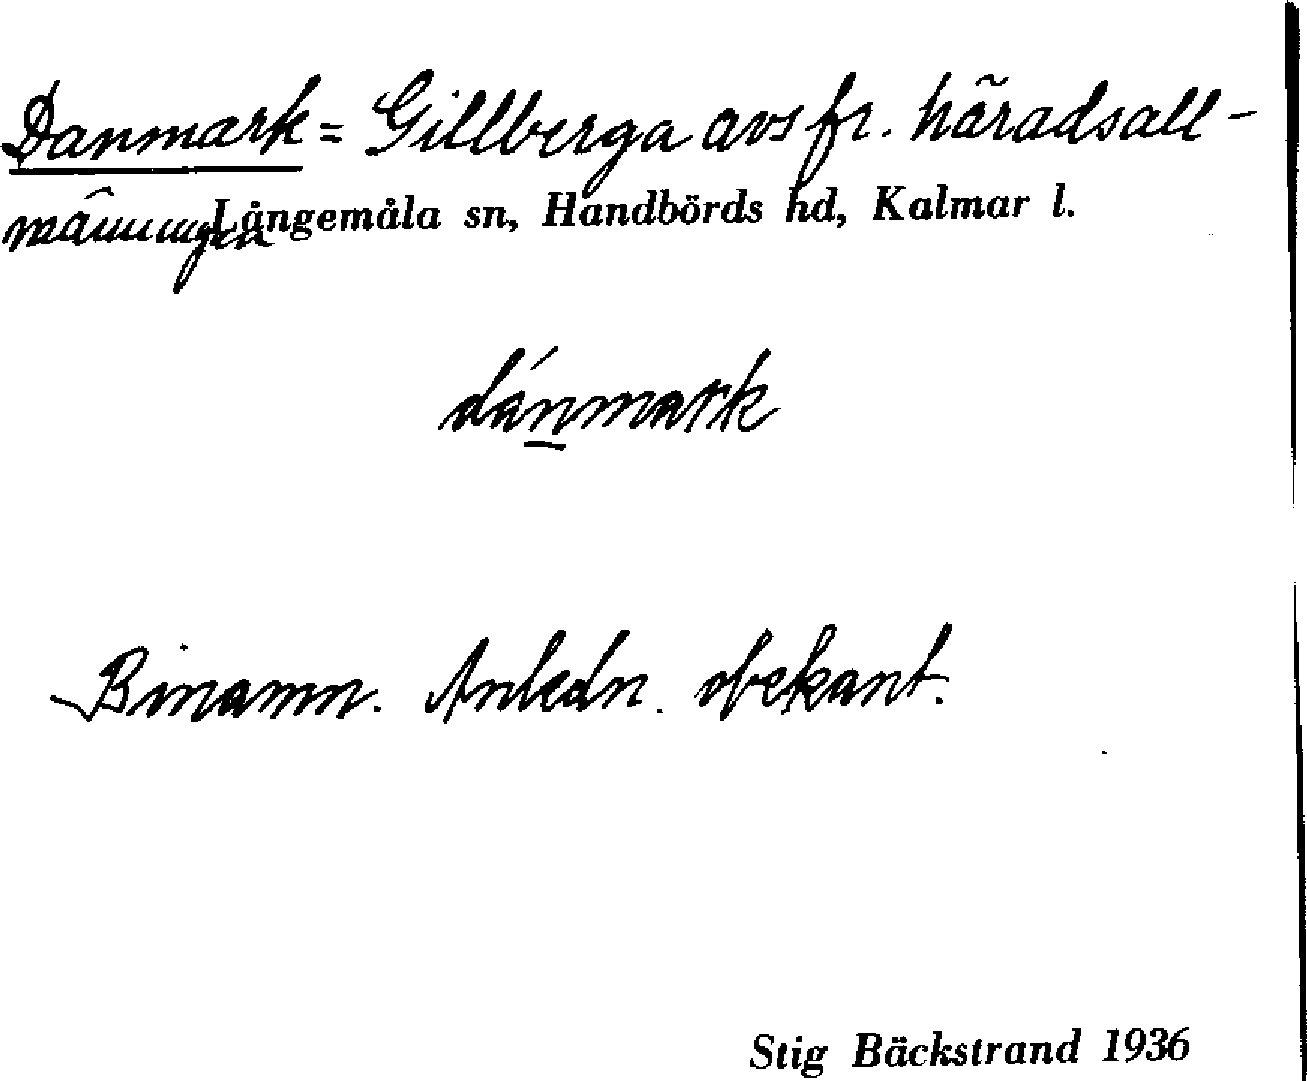 Danmark = Gillberga avs fr. häradsall-
männingen Långemåla sn, Handbörds hd, Kalmar l.
dánmark
Binamn. Anledn. obekant.
Stig Bäckstrand 1936